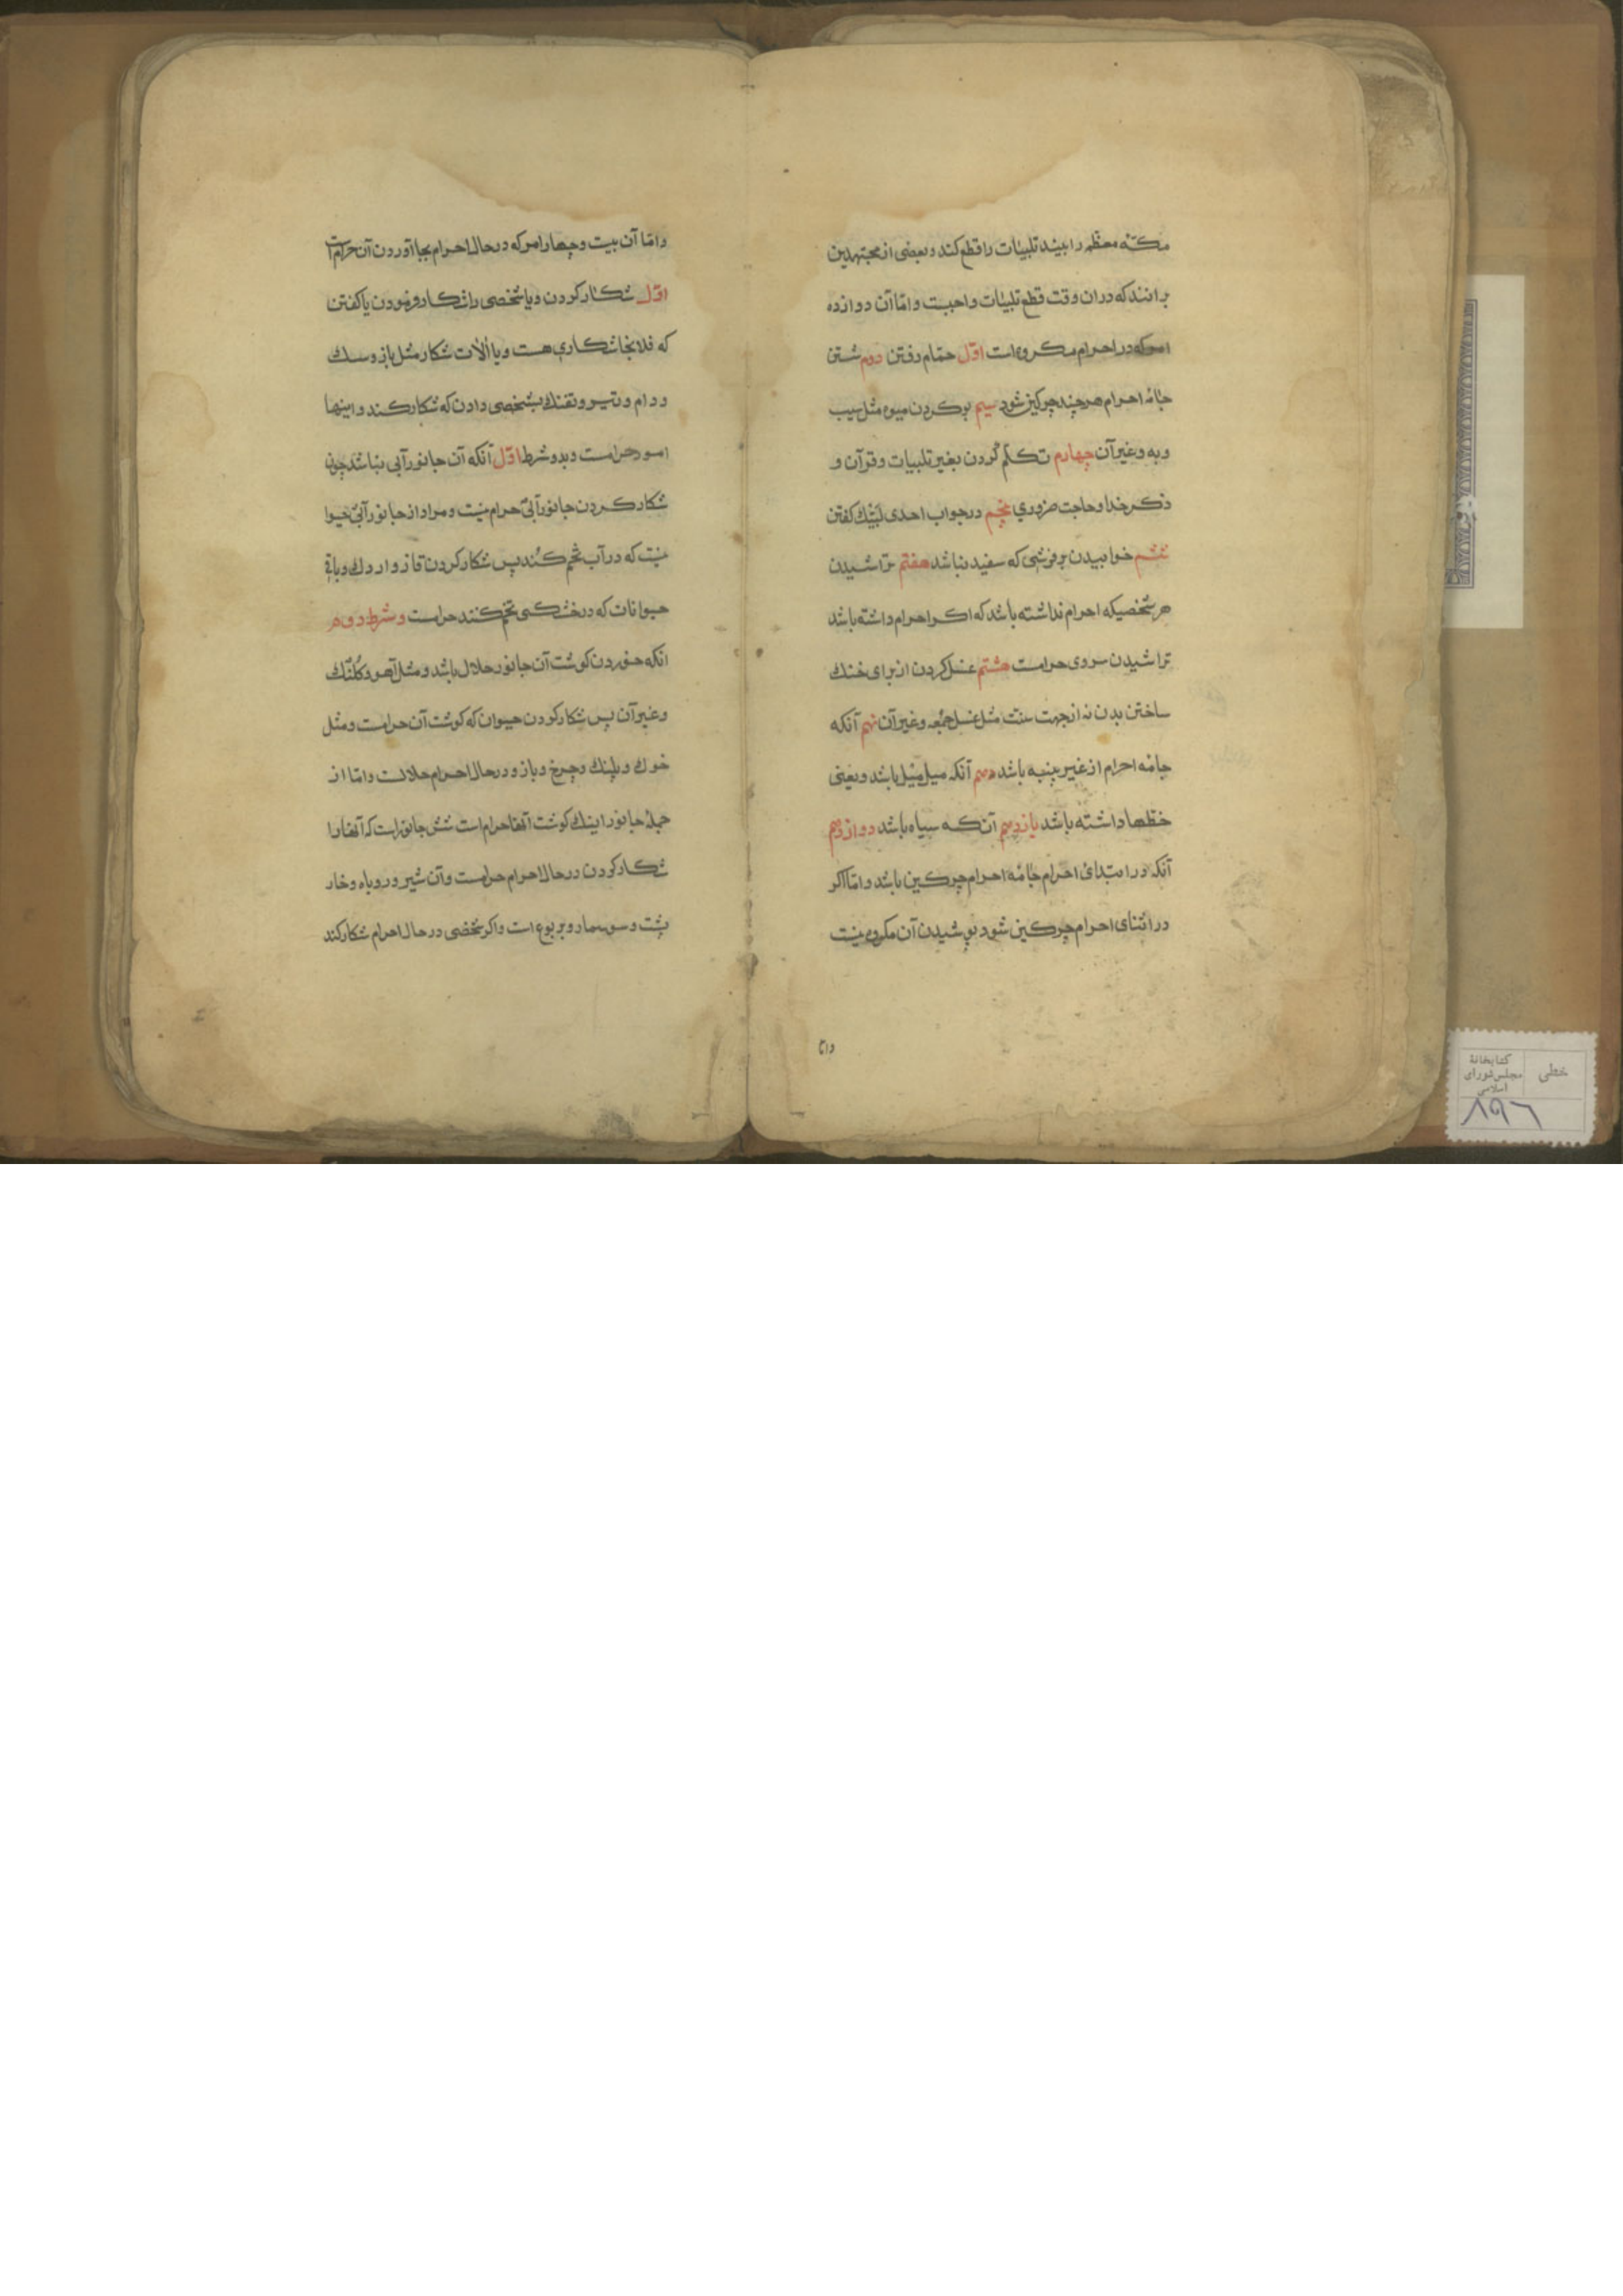 مکّه معظّمه را بیند تلبیات را قطع کند و بعضی از مجتهدین
برانند که دران وقت قطع تلبیات واجبست و امّا آن دوازده
امر که در احرام مکروه است اوّل حمّام رفتن دوم شستن
جامهٔ احرام هرچند چرکین شود سیم بو کردن میوه مثل سیب
و به و غیر آن چهارم تکلّم کردن بغیر تلبیات و قرآن و
ذکر خدا و حاجت ضروری پنجم در جواب احدی لبّیك کفتن
ششم خوابیدن بر فرشی که سفید نباشد هفتم تراشیدن
هر شخصیکه احرام نداشته باشد که اکر احرام داشته باشد
تراشیدن سر وی حرامست هشتم غسل کردن از برای خنك
ساختن بدن نه از جهت سنّت مثل غسل جمعه و غیر آن نهم آنکه
جامه احرام از غیر پنبه باشد دهم آنکه میل میل باشد و یعنی
خطّها داشته باشد یازدهم آنکه سیاه باشد دوازدهم
آنکه در ابتدای احرام جامهٔ احرام چرکین باشد و امّا اکر
در اثنای احرام چرکین شود پوشیدن آن مکروه نیست
وامّا
وامّا آن بیست و چهار امر که در حال احرام بجا آوردن آن حرام است
اوّل شکار کردن و یا شخصی را شکار فرمودن یا کفتن
که فلانجا شکاری هست و یا آلات شکار مثل باز و سك
و دام و تیر و تفنك بشخصی دادن که شکار کند و اینها
امور حرامست و بدو شرط اوّل آنکه آن جانور آبی نباشد چون
شکار کردن جانور آبی حرام نیست و مراد از جانور آبی حیوا
نیست که در آب تخم کنند پس شکار کردن قاز و اردك و باقی
حیوانات که در خشکی تخم کنند حرامست و شرط دوم
انکه خوردن کوشت آن جانور حلال باشد و مثل آهو و کلنك
و غیر آن پس شکار کردن حیوان که کوشت آن حرامست و مثل
خوك و پلنك و چرخ و باز و در حال احرام حلالست و امّا از
جمله جانور اینك کوشت آنها حرام است شش جانور است که آنها را
شکار کردن در حال احرام حرامست و آن شیر و روباه و خار
پشت و سوسمار و یربوع است و اکر شخصی در حال احرام شکار کند
خطی
کتابخانهٔ
مجلس شورای
اسلامی
۸۹۶